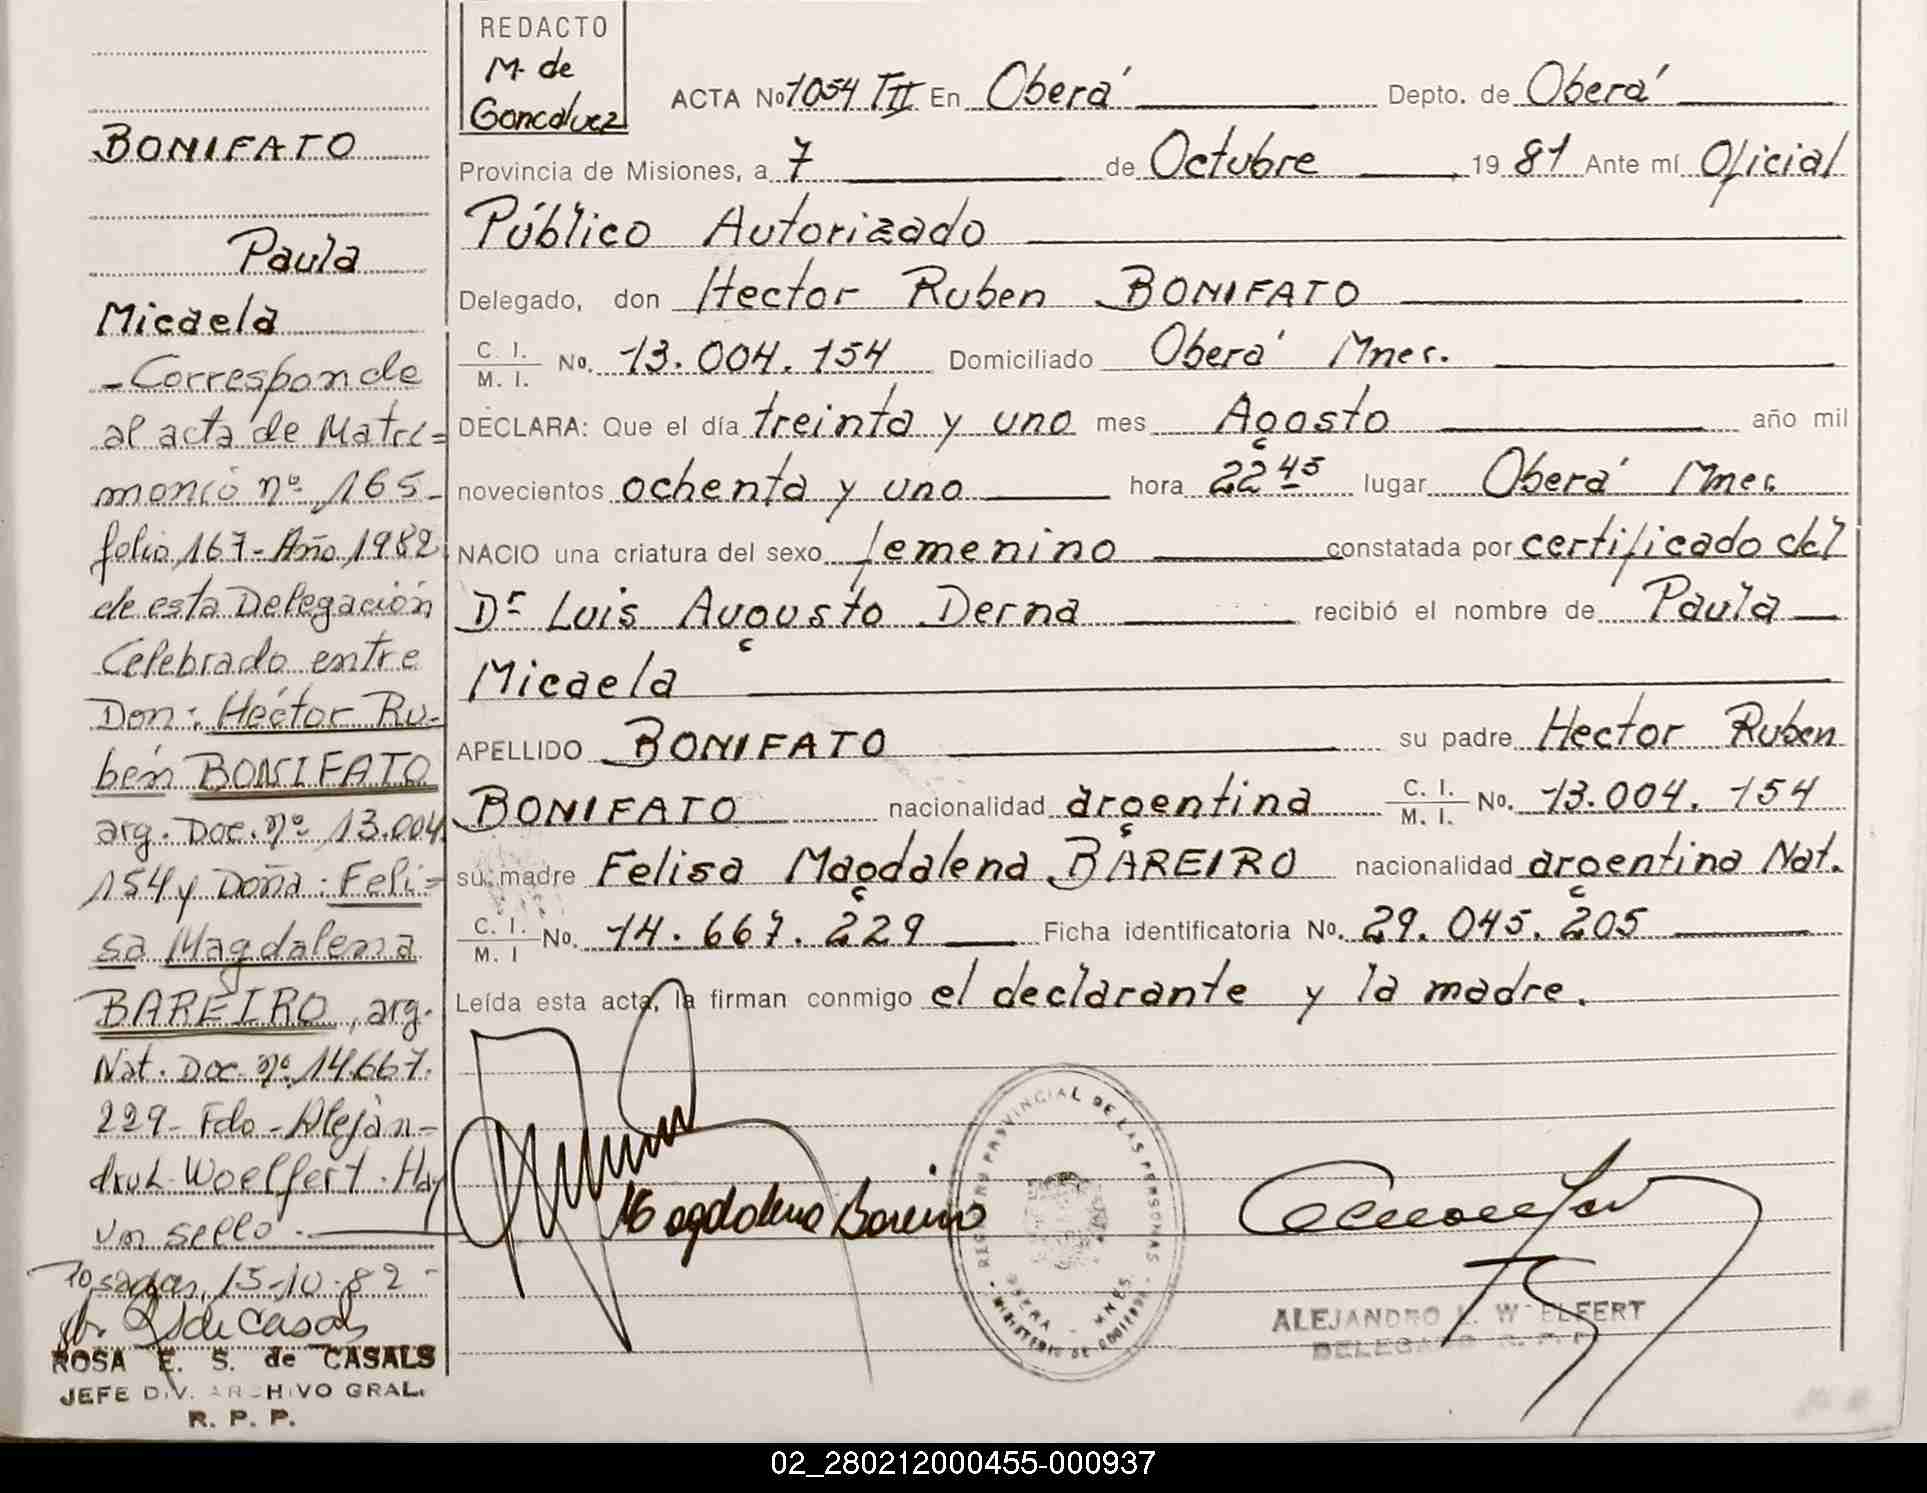 BONIFATO
Paula
Micaela
- Corresponde
al acta de Matri=
monio nº 165-
folio 167 - Año 1982
de esta Delegación
Celebrado entre
Don: Héctor Ru-
bén BONIFATO
arg. Doc. nº 13.004.
154 y Doña: Feli=
sa Magdalena
BAREIRO, arg.
Nat. Doc. nº 14.667.
229 - Fdo - Aleján-
dro L. Woelfert. Hay
un sello.
Posadas, 15-10-82-
de Casals
ROSA E. S. de CASALS
JEFE DIV. ARCHIVO GRAL.
R. P. P.
REDACTO
M. de
Goncalvez
ACTA No 1054 TII En Oberá Depto. de Oberá
Provincia de Misiones, a 7 de Octubre, 19 81 Ante mí Oficial
Público Autorizado
Delegado, don Hector Ruben BONIFATO
C. I. / M. I. No. 13.004.154 Domiciliado Oberá Mnes.
DECLARA: Que el día treinta y uno mes Agosto año mil
novecientos ochenta y uno hora 22 45 lugar Oberá Mnes.
NACIO una criatura del sexo femenino constatada por certificado del
Dr Luis Augusto Derna recibió el nombre de Paula
Micaela
APELLIDO BONIFATO su padre Hector Ruben
BONIFATO nacionalidad argentina C. I. / M. I. No. 13.004.154
su madre Felisa Magdalena BAREIRO nacionalidad argentina Nat.
C. I. / M. I No. 14.667.229 Ficha identificatoria No. 29.045.205
Leída esta acta, la firman conmigo el declarante y la madre.
Magdalena Bareiro
REGISTRO PROVINCIAL DE LAS PERSONAS
OBERA - MNES.
MINISTERIO DE GOBIERNO
ALEJANDRO L. WOELFERT
DELEGADO R. P. P.
02_280212000455-000937